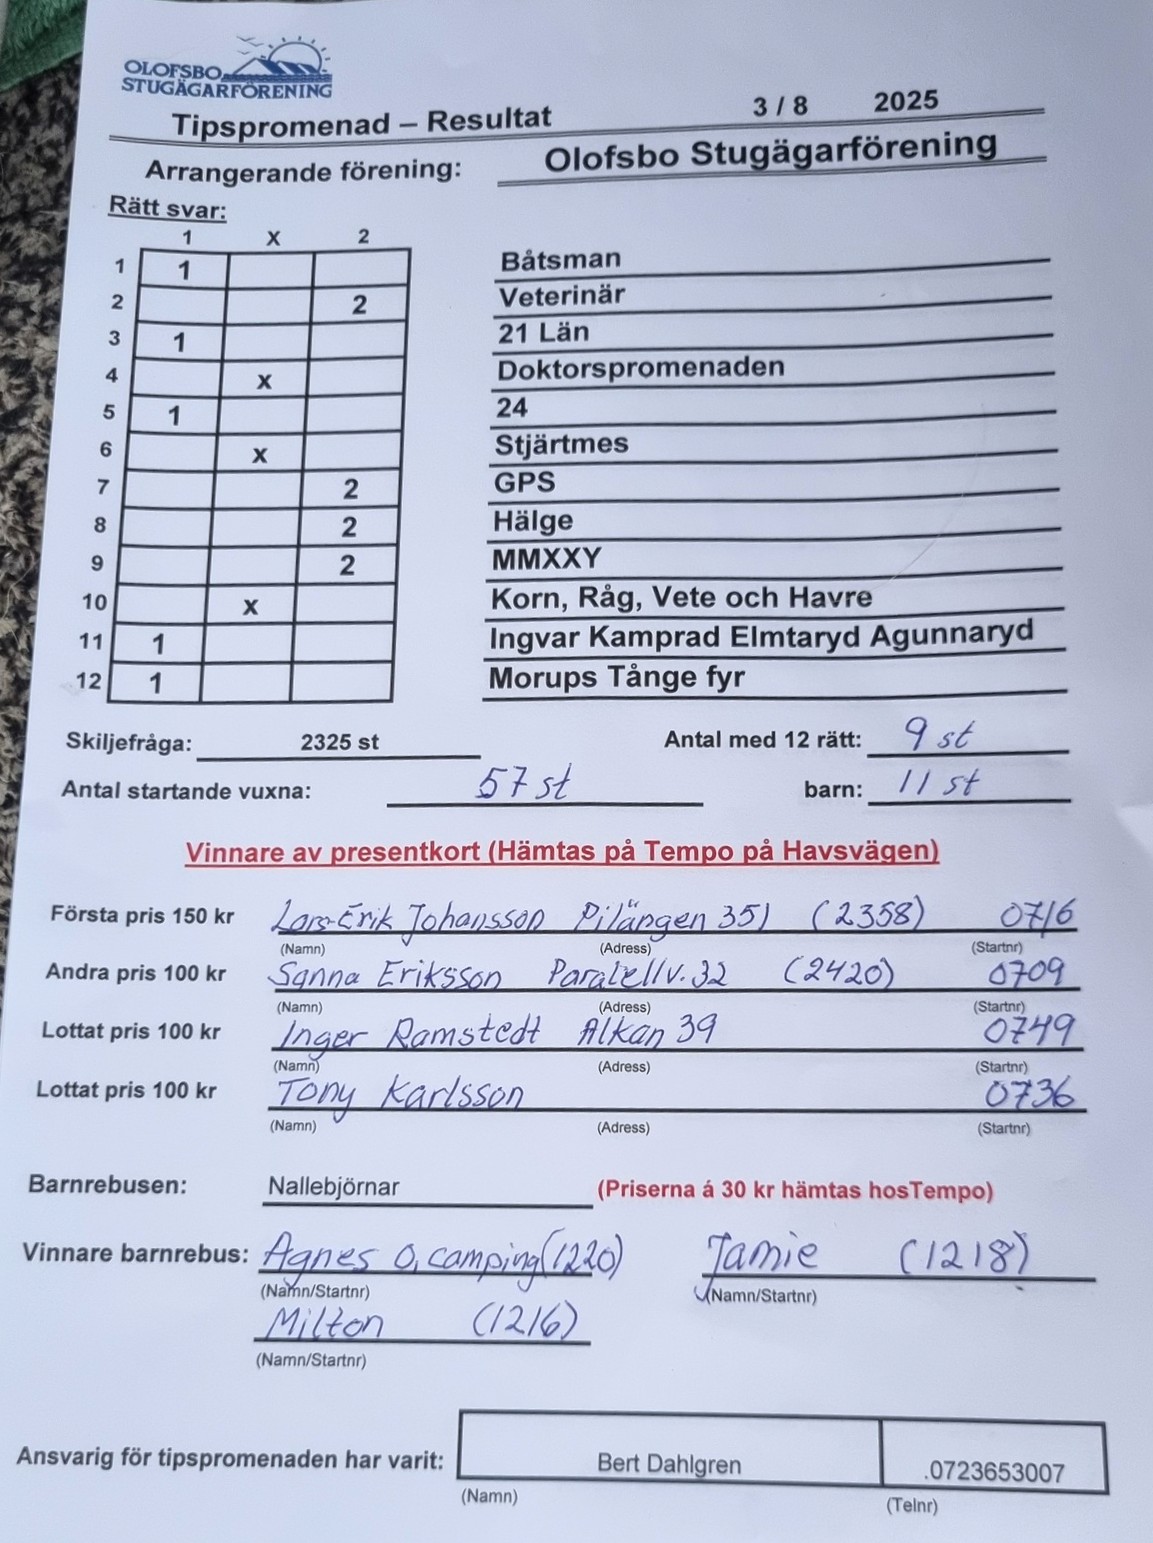 OLOFSBO
STUGÄGARFÖRENING
Tipspromenad – Resultat 3 / 8 2025
Arrangerande förening: Olofsbo Stugägarförening
Rätt svar:
1 X 2
1 1 Båtsman
2 2 Veterinär
3 1 21 Län
4 X Doktorspromenaden
5 1 24
6 X Stjärtmes
7 2 GPS
8 2 Hälge
9 2 MMXXY
10 X Korn, Råg, Vete och Havre
11 1 Ingvar Kamprad Elmtaryd Agunnaryd
12 1 Morups Tånge fyr
Skiljefråga: 2325 st Antal med 12 rätt: 9 st
Antal startande vuxna: 57 st barn: 11 st
Vinnare av presentkort (Hämtas på Tempo på Havsvägen)
Första pris 150 kr Lars-Erik Johansson Pilängen 351 (2358) 0716
(Namn) (Adress) (Startnr)
Andra pris 100 kr Sanna Eriksson Paralellv. 32 (2420) 0709
(Namn) (Adress) (Startnr)
Lottat pris 100 kr Inger Ramstedt Alkan 39 0749
(Namn) (Adress) (Startnr)
Lottat pris 100 kr Tony Karlsson 0736
(Namn) (Adress) (Startnr)
Barnrebusen: Nallebjörnar (Priserna á 30 kr hämtas hosTempo)
Vinnare barnrebus: Agnes O, camping (1220) Jamie (1218)
(Namn/Startnr) (Namn/Startnr)
Milton (1216)
(Namn/Startnr)
Ansvarig för tipspromenaden har varit: Bert Dahlgren .0723653007
(Namn) (Telnr)